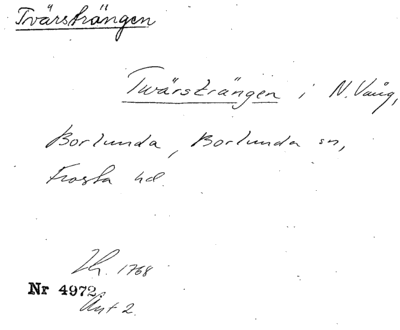 Tvärsträngen
Twärsträngen i N. Vång,
Borlunda, Borlunda sn,
Frosta hd.
1768
Nr 4972
Akt 2.